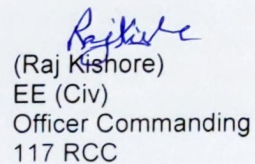 RajKishore
(Raj Kishore)
EE (Civ)
Officer Commanding
117 RCC